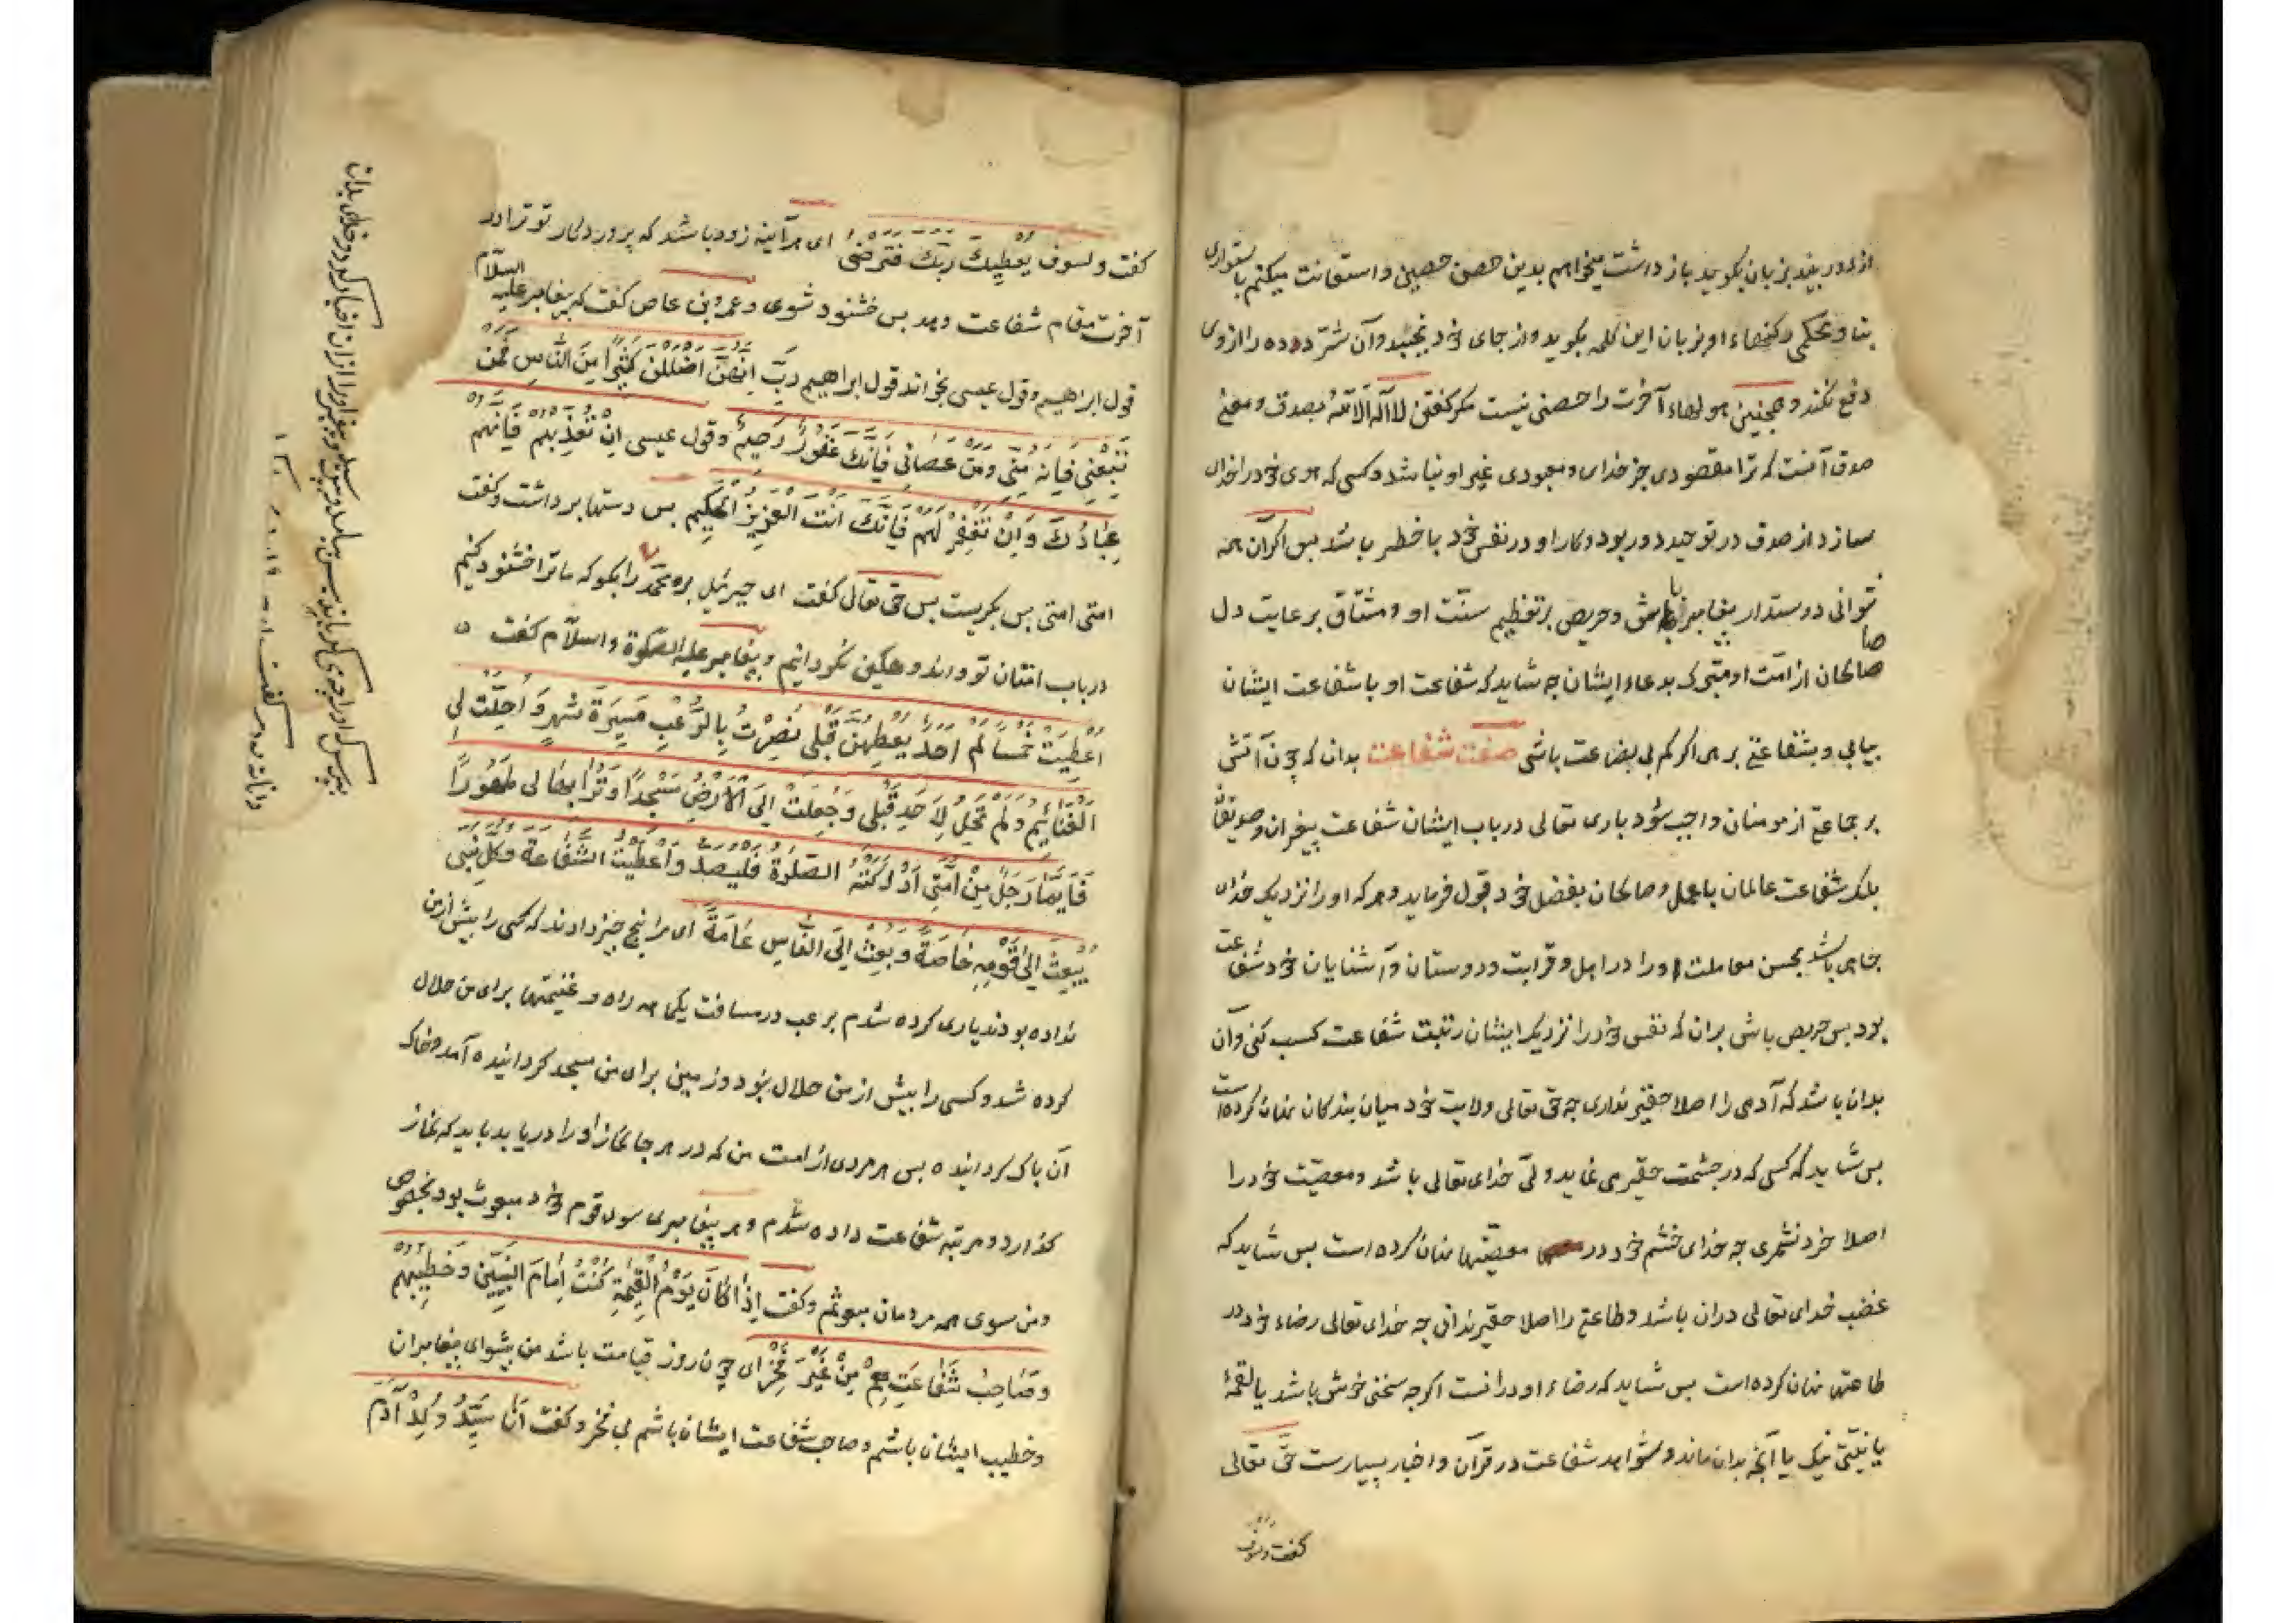 از دور بیند بزبان بکوید باز داشت میخواهم بدین حصن حصین و استعانت میکنم باستواری
بنا و محکمی رکنهاء او بزبان این کلمه بکوید و از جای خود نجنبد و آن شر درنده را از وی
دفع نکند و همچنین هولهاء آخرت را حصنی نیست مکر کفتن لا اله الا الله بصدق و معنی
صدق آنست که ترا مقصودی جز خدای و معبودی غیر او نباشد و کسی که هوی خود را خدای
سازد از صدق در توحید دور بود و کار او در نفس خود با خطر باشد بس اکر آن همه
نتوانی دوستدار بیغامبر باش و حریص بر تعظیم سنت او و مشتاق برعایت دل
صالحان از امت او متبرک بدعاء ایشان چه شاید که شفاعت او یا شفاعت ایشان
بیابی و بشفاعتی برهی اکر کم بی بضاعت باشی صفت شفاعت بدان که چون آتش
بر جماعتی از مومنان واجب شود باری تعالی در باب ایشان شفاعت بیغمبران و صدیقان
بلک شفاعت عالمان با عمل و صالحان بفضل خود قبول فرماید و هر که او را نزدیک خدای
جاهی باشد بحسن معاملت او را در اهل و قرابت و دوستان و آشنایان خود شفاعت
بود بس حریص باشی بران که نفس خود را نزدیک ایشان رتبت شفاعت کسب کنی و آن
بدان باشد که آدمی را اصلا حقیر نداری چه حق تعالی ولایت خود میان بندکان نهان کرده است
بس شاید که کسی که در چشمت حقیر می نماید ولی خدای تعالی باشد و معصیت خود را
اصلا خرد نشمری چه خدای خشم خود در معصیتها نهان کرده است بس شاید که
غضب خدای تعالی دران باشد و طاعتی را اصلا حقیر ندانی چه خدای تعالی رضاء خود در
طاعتها نهان کرده است بس شاید که رضاء او درانست اکرچه سخنی خوش باشد یا لقمهٔ
یا نیتی نیک یا آنچه بدان ماند و شواهد شفاعت در قرآن و اخبار بسیارست حق تعالی
کفت ولسوف
کفت ولسوف یُعْطِیكَ رَبُّكَ فَتَرْضَى ای هرآینه زود باشد که پروردکار تو ترا در
آخرت مقام شفاعت دهد بس خشنود شوی و عمرو بن عاص کفت که بیغامبر علیه السلام
قول ابراهیم و قول عیسی بخواند قول ابراهیم رَبِّ اِنَّهُنَّ اَضْلَلْنَ كَثِیرًا مِنَ النَّاسِ فَمَنْ
تَبِعَنِي فَاِنَّهُ مِنِّي وَمَنْ عَصَانِي فَاِنَّكَ غَفُورٌ رَحِیمٌ و قول عیسی اِنْ تُعَذِّبْهُمْ فَاِنَّهُمْ
عِبَادُكَ وَاِنْ تَغْفِرْ لَهُمْ فَاِنَّكَ اَنْتَ الْعَزِیزُ الْحَكِیمُ بس دستها برداشت و کفت
امتی امتی بس بکریست بس حق تعالی کفت ای جبرئیل برو محمد را بکو که ما ترا خشنود کنیم
در باب امتان تو و اندوهکین نکردانیم و بیغامبر علیه الصلوة والسلام کفت
اُعْطِیتُ خَمْسًا لَمْ یُعْطَهُنَّ اَحَدٌ قَبْلِي نُصِرْتُ بِالرُّعْبِ مَسِیرَةَ شَهْرٍ وَاُحِلَّتْ لِي
الْغَنَائِمُ وَلَمْ تَحِلَّ لِاَحَدٍ قَبْلِي وَجُعِلَتْ لِيَ الْاَرْضُ مَسْجِدًا وَتُرَابُهَا لِي طَهُورًا
فَاَیُّمَا رَجُلٍ مِنْ اُمَّتِي اَدْرَكَتْهُ الصَّلٰوةُ فَلْیُصَلِّ وَاُعْطِیتُ الشَّفَاعَةَ وَكُلُّ نَبِيٍّ
یُبْعَثُ اِلَى قَوْمِهِ خَاصَّةً وَبُعِثْتُ اِلَى النَّاسِ عَامَّةً ای مرا پنج چیز دادند که کسی را بیش از من
نداده بودند یاری کرده شدم برعب در مسافت یکماهه راه و غنیمتها برای من حلال
کرده شد و کسی را بیش از من حلال نبود و زمین برای من مسجد کردانیده آمد و خاک
آن پاک کردانیده بس هر مردی از امت من که در هر جا نماز او را دریابد باید که نماز
کذارد و مرتبه شفاعت داده شدم و هر بیغامبری سوی قوم خود مبعوث بود بخصوص
و من سوی همه مردمان مبعوثم و کفت اِذَا كَانَ یَوْمُ الْقِیٰمَةِ كُنْتُ اِمَامَ النَّبِیِّینَ وَخَطِیبَهُمْ
وَصَاحِبَ شَفَاعَتِهِمْ مِنْ غَیْرِ فَخْرٍ ای چون روز قیامت باشد من پیشوای بیغامبران
و خطیب ایشان باشم و صاحب شفاعت ایشان باشم بی فخر و کفت اَنَا سَیِّدُ وُلْدِ آدَمَ